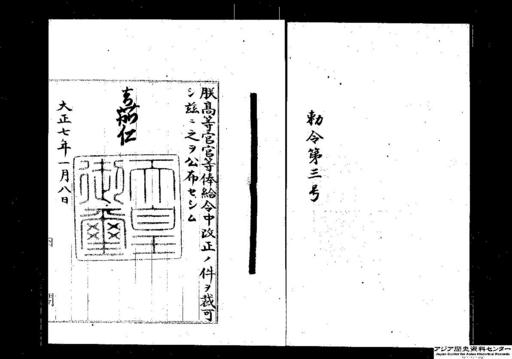 勅令第三号
朕高等官官等俸給令中改正ノ件ヲ裁可
シ茲ニ之ヲ公布セシム
嘉仁
天皇
御璽
大正七年一月八日
アジア歴史資料センター
Japan Center for Asian Historical Records